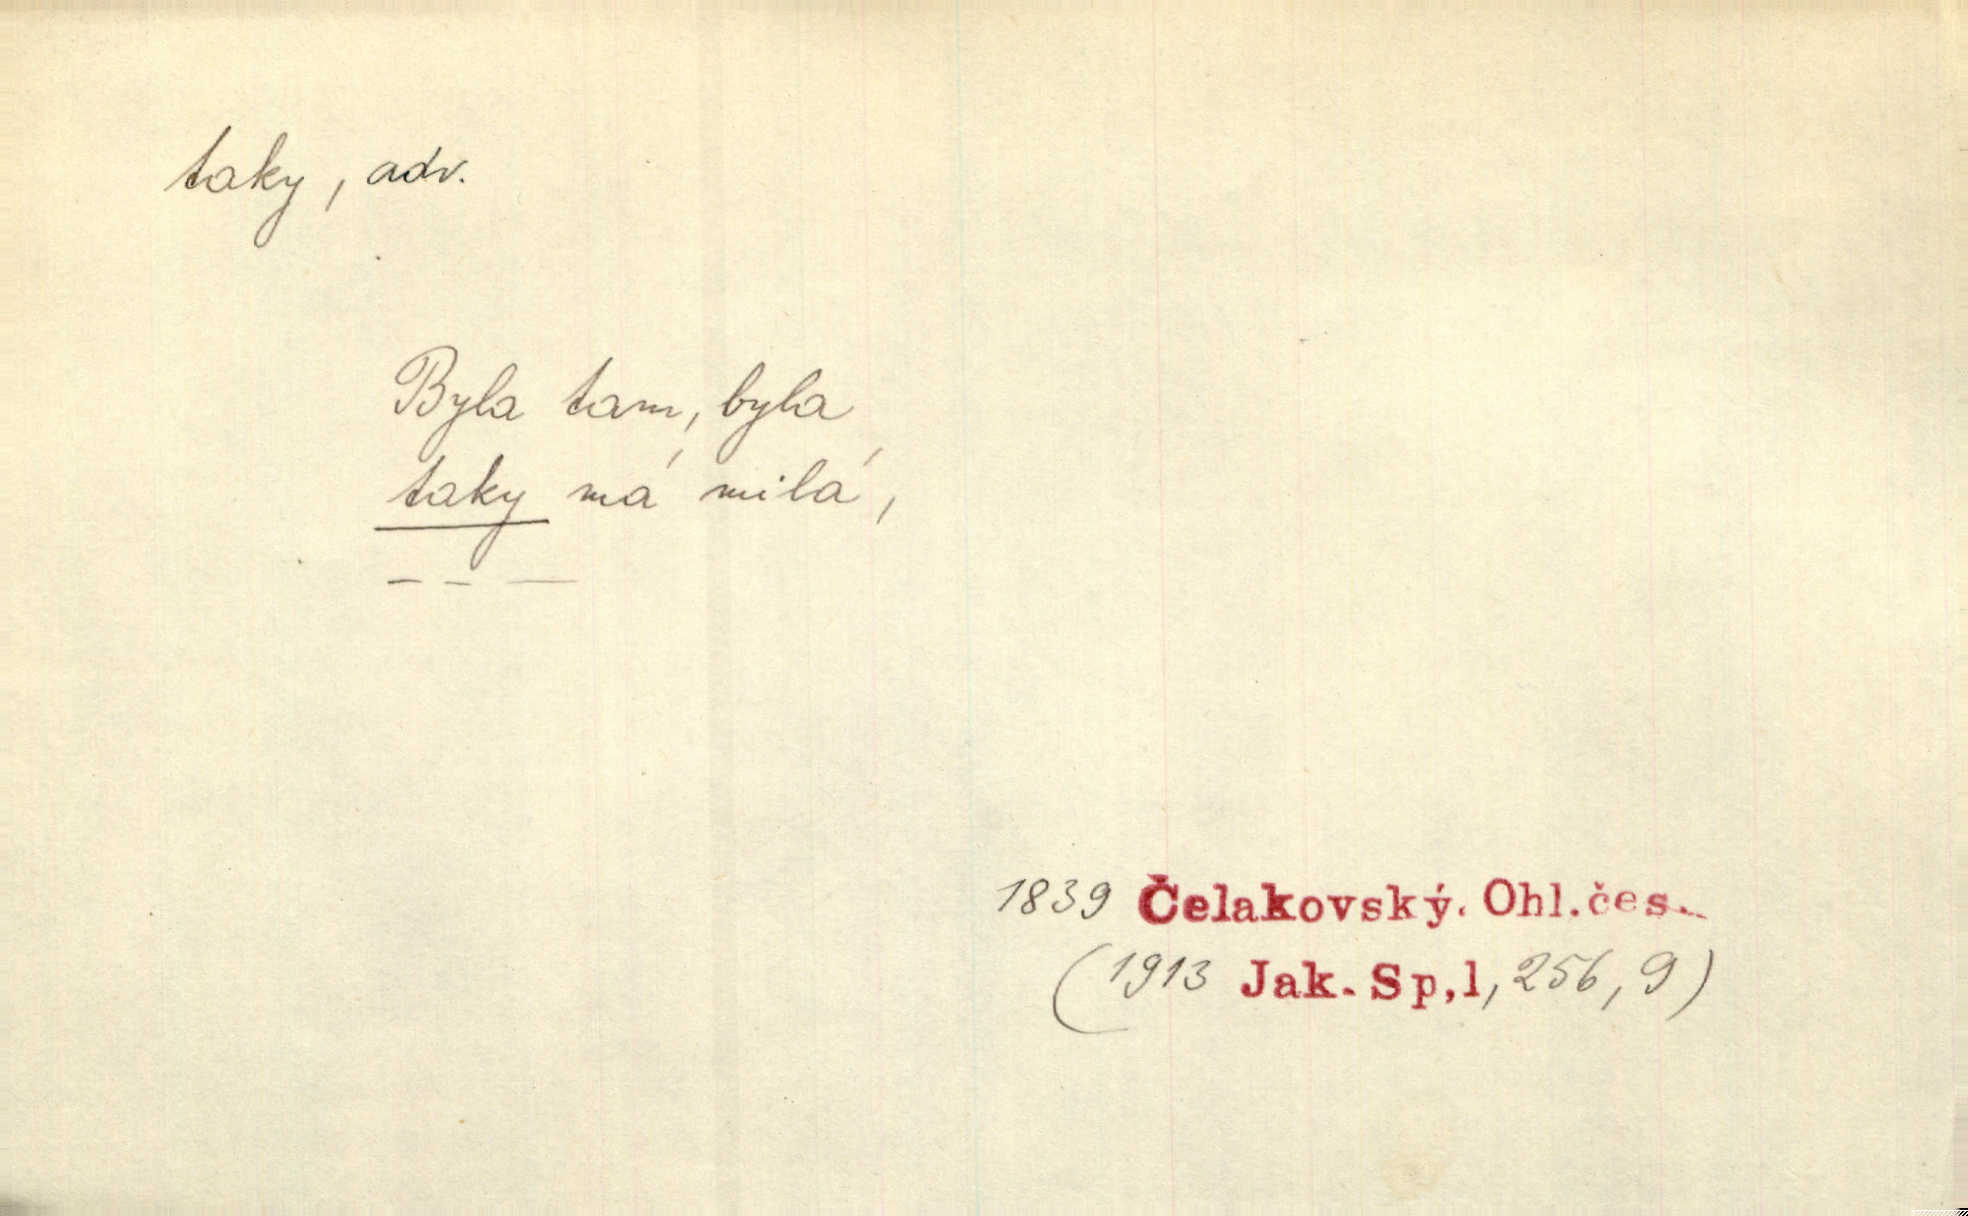 taky, adv.
Byla tam, byla
taky má milá,
– – —
1839 Čelakovský. Ohl.čes.
(1913 Jak. Sp,1, 256, 9)